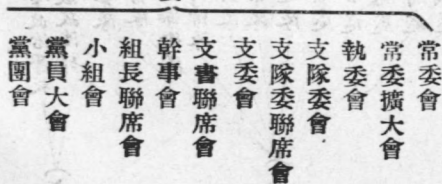 常委會
常委擴大會
執委會
支隊委會
支隊委聯席會
支委會
支書聯席會
幹事會
組長聯席會
小組會
黨員大會
黨團會